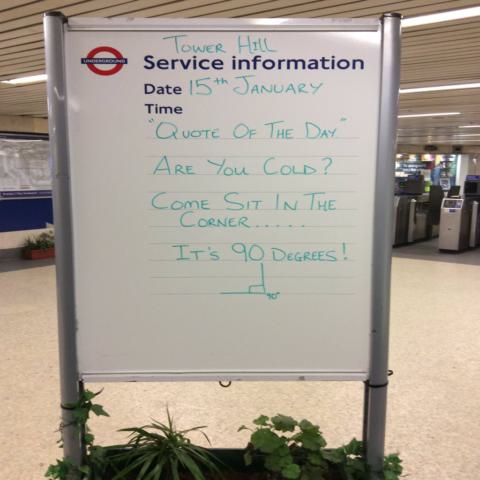 Tower Hill
UNDERGROUND
Service information
Date 15th January
Time
"Quote Of The Day"
Are You Cold?
Come Sit In The
Corner.....
It's 90 Degrees!
90°